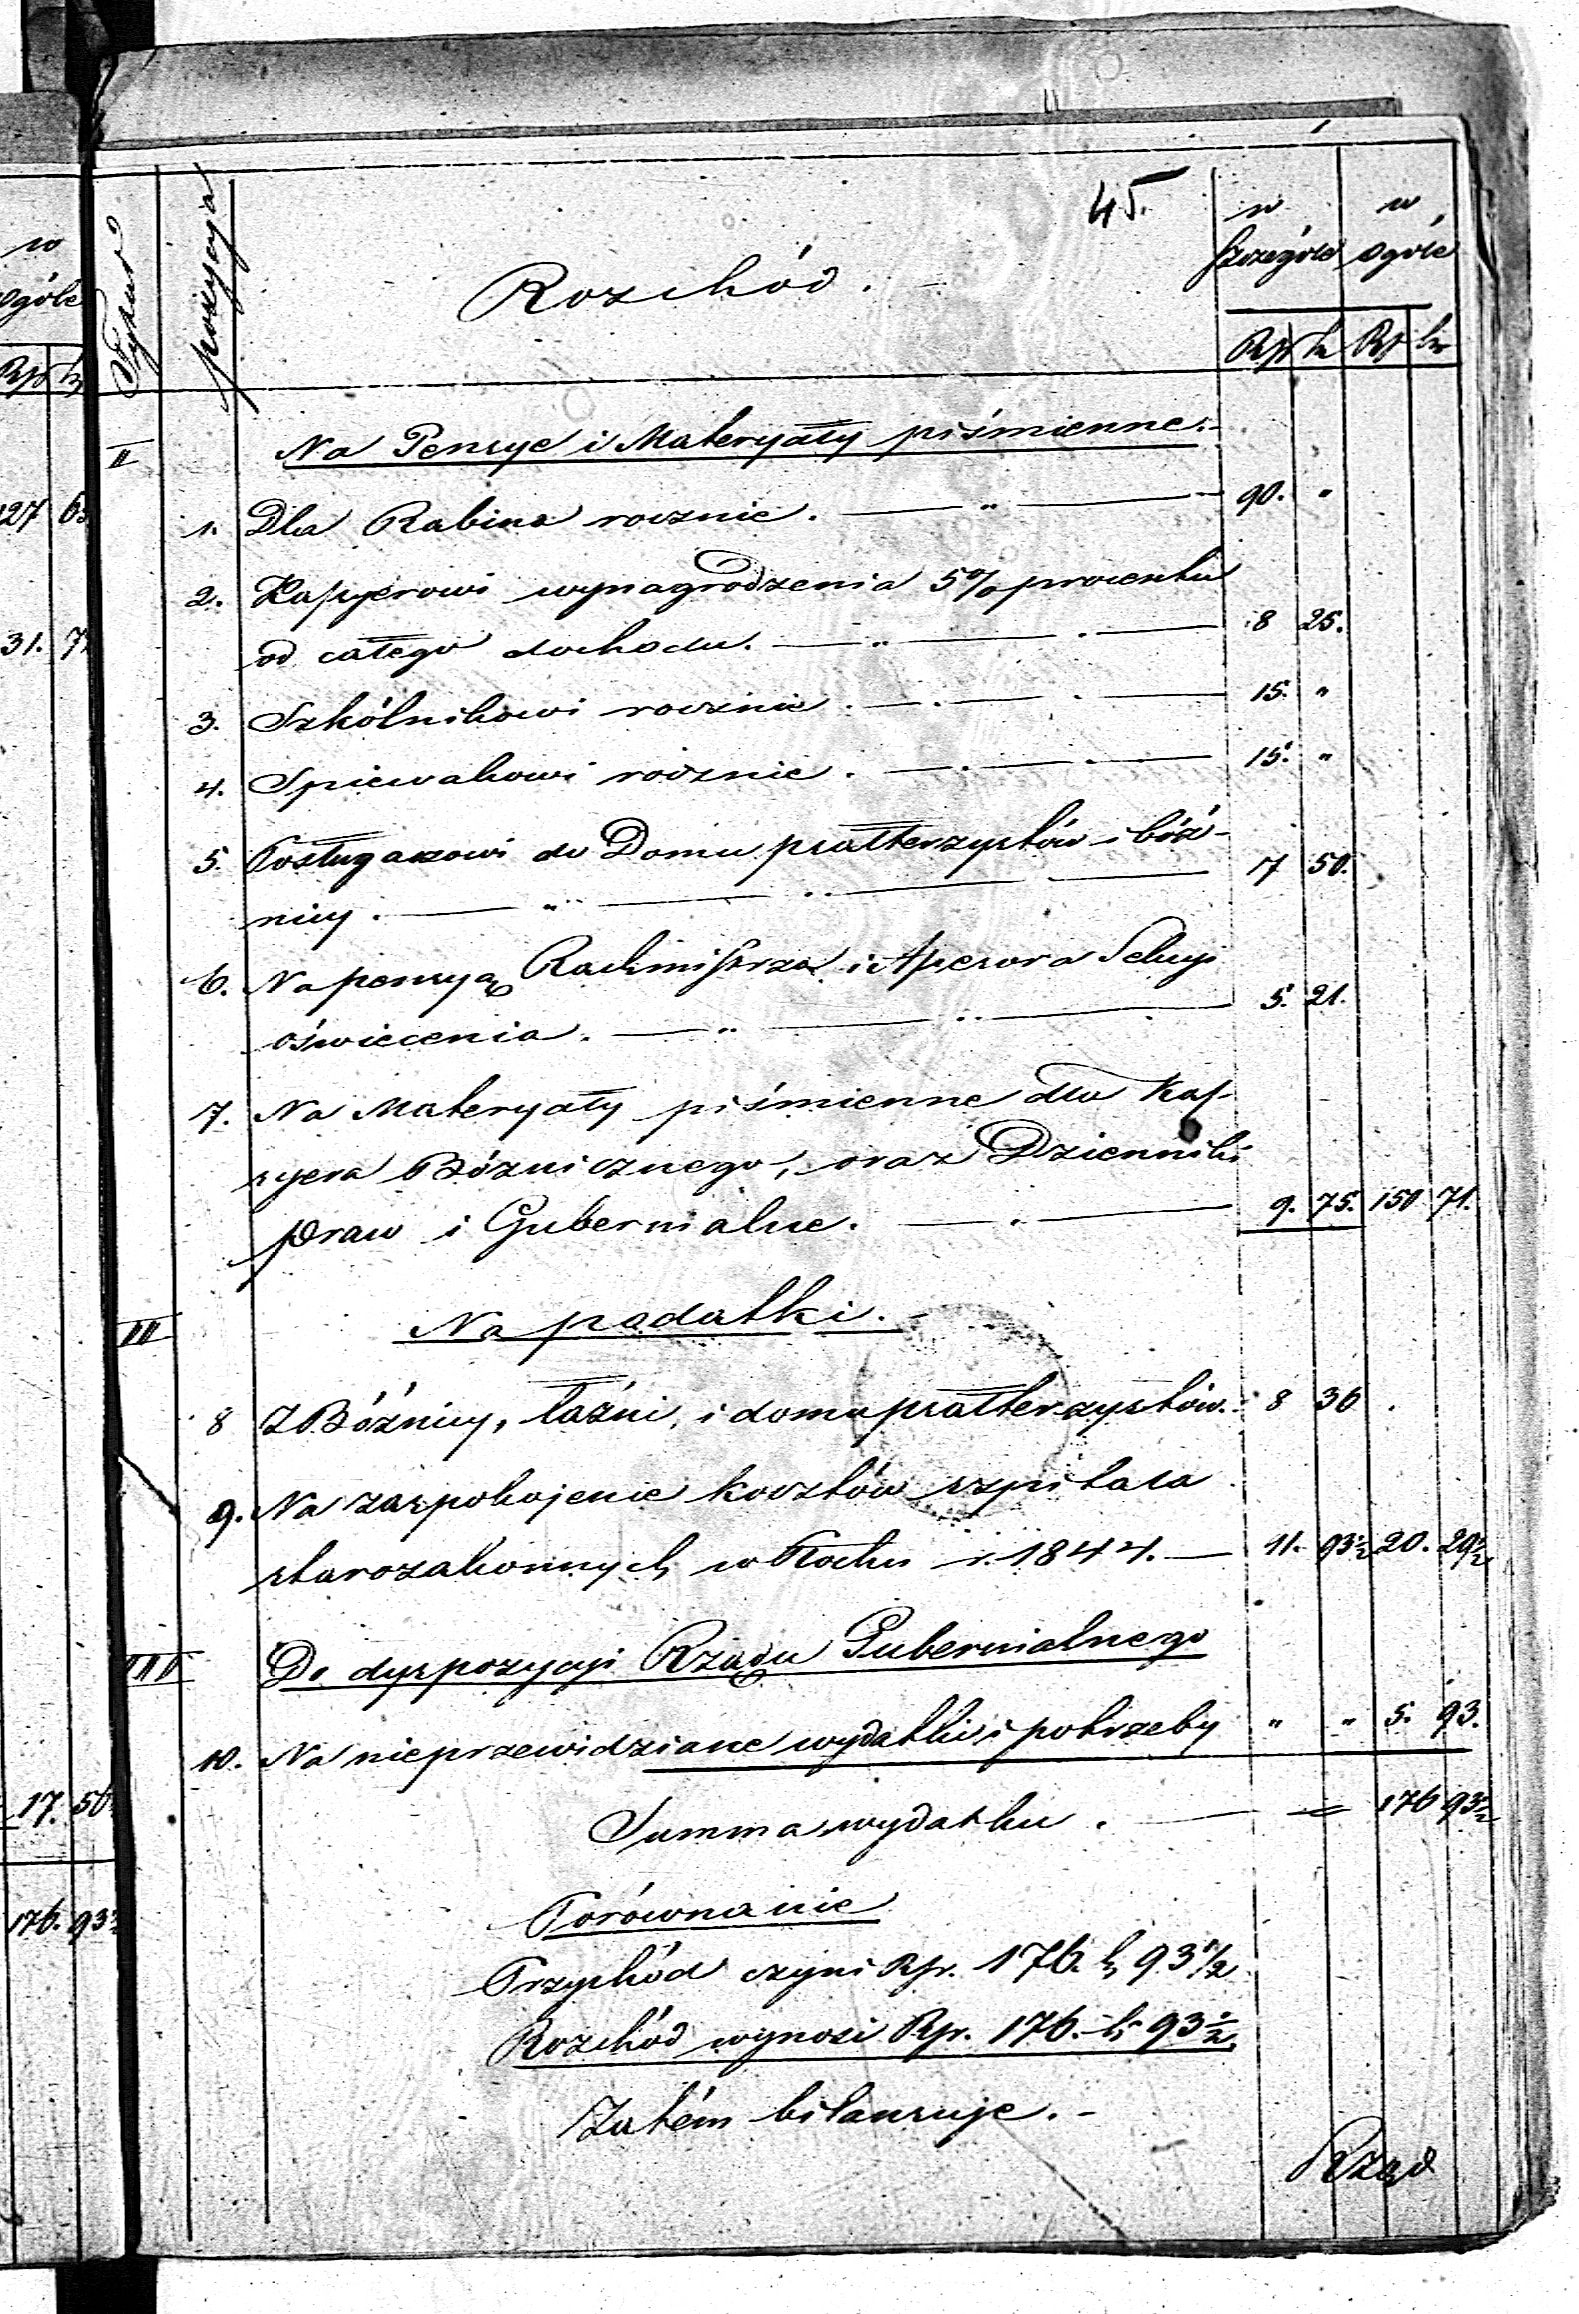 45.
w w
Szczególe ogóle
Tytuł pozycya Rozchód.
Rsr k Rsr k
II Na Pensye i Materyały piśmienne.
1. Dla Rabina rocznie. — " — 90. "
2. Kassyerowi wynagrodzenia 5% procentu
od całego dochodu. — " — 8 25.
3. Szkólnikowi rocznie. — 15. "
4. Spiewakowi rocznie. — 15. "
5. Posługaczowi do Domu psałterzystów i bóż-
nicy. — " — 7 50.
6. Na pensyą Rachmistrza i Assesora Sekcyi
oświecenia. — " — 5. 21.
7. Na Materyały piśmienne dla Kas-
syera Bóżnicznego, oraz Dzienniki
praw i Gubernialne. — 9. 75. 150 71.
III Na podatki.
8 Z Bóżnicy, łaźni, i domu psałterzystów. 8 36
9. Na zaspokojenie kosztów szpitala
starozakonnych w Płocku r. 1844. — 11. 93½ 20. 29½
IIII Do dyspozycyi Rządu Gubernialnego
10. Na nieprzewidziane wydatki i potrzeby " " 5. 93.
Summa wydatku. — 176 93½
Porównanie
Przychód czyni Rsr. 176. k 93 1/2
Rozchód wynosi Rsr. 176. k 93 ½
Zatém bilansuje.-
Rząd
w
ogóle
Rsr k
127
31.
17. 56
176. 93½